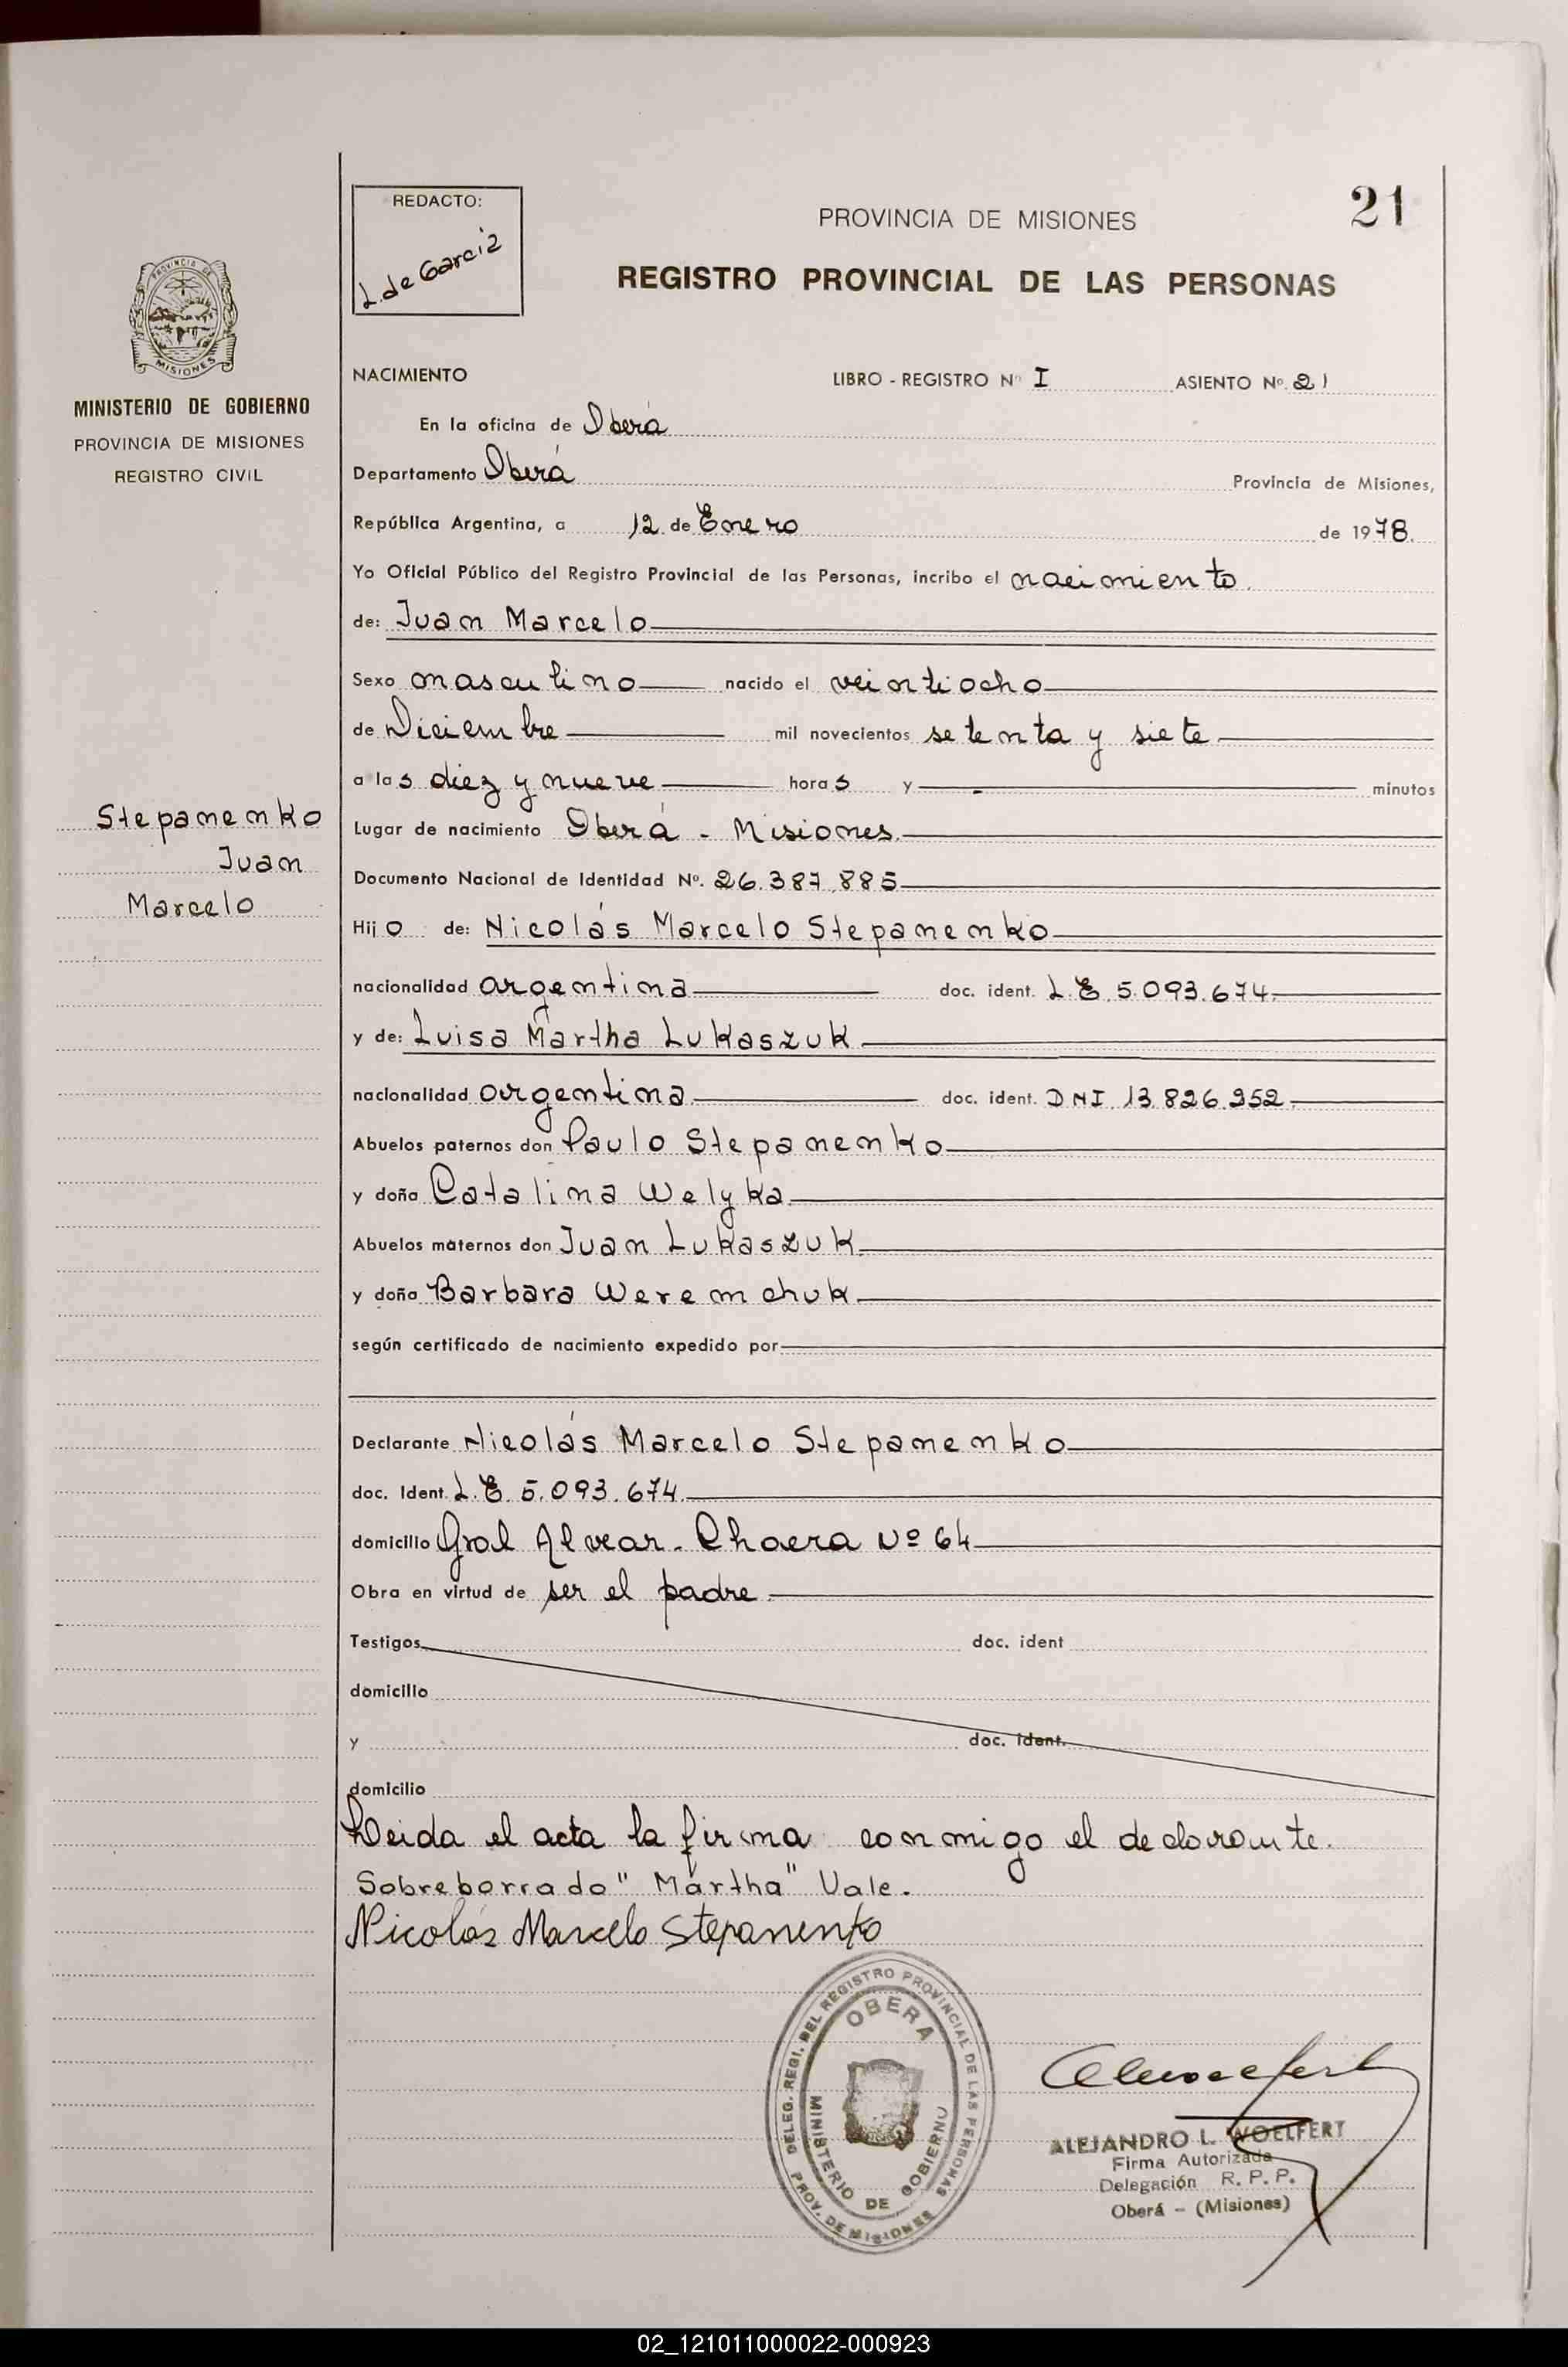 21
REDACTO:
L. de Garcia
PROVINCIA DE MISIONES
REGISTRO PROVINCIAL DE LAS PERSONAS
PROVINCIA DE
MISIONES
MINISTERIO DE GOBIERNO
PROVINCIA DE MISIONES
REGISTRO CIVIL
NACIMIENTO LIBRO - REGISTRO Nº I ASIENTO Nº. 21
En la oficina de Oberá
Departamento Oberá Provincia de Misiones,
República Argentina, a 12 de Enero de 1978.
Yo Oficial Público del Registro Provincial de las Personas, incribo el nacimiento.
de: Juan Marcelo
Sexo masculino nacido el veintiocho
de Diciembre mil novecientos setenta y siete
a las diez y nueve horas y - minutos
Stepanenko
Juan
Marcelo
Lugar de nacimiento Oberá - Misiones.
Documento Nacional de Identidad Nº. 26.387.885
Hijo de: Nicolás Marcelo Stepanenko
nacionalidad argentina doc. ident. L.E 5.093.674.
y de: Luisa Martha Lukaszuk
nacionalidad argentina doc. ident. DNI 13.826.252.
Abuelos paternos don Paulo Stepanenko
y doña Catalina Welyka
Abuelos maternos don Juan Lukaszuk
y doña Barbara Weremchuk
según certificado de nacimiento expedido por
Declarante Nicolás Marcelo Stepanenko
doc. Ident. L.E. 5.093.674.
domicilio Gral Alvear. Chacra Nº 64
Obra en virtud de ser el padre.
Testigos doc. ident
domicilio
y doc. ident.
domicilio
Leida el acta la firma conmigo el declarante.
Sobreborrado "Martha" Vale.
Nicolás Marcelo Stepanenko
DELEG. REGI. DEL REGISTRO PROVINCIAL DE LAS PERSONAS
OBERA
MINISTERIO DE GOBIERNO
PROV. DE MISIONES
ALEJANDRO L. WOELFERT
Firma Autorizada
Delegación R. P. P.
Oberá - (Misiones)
02_121011000022-000923